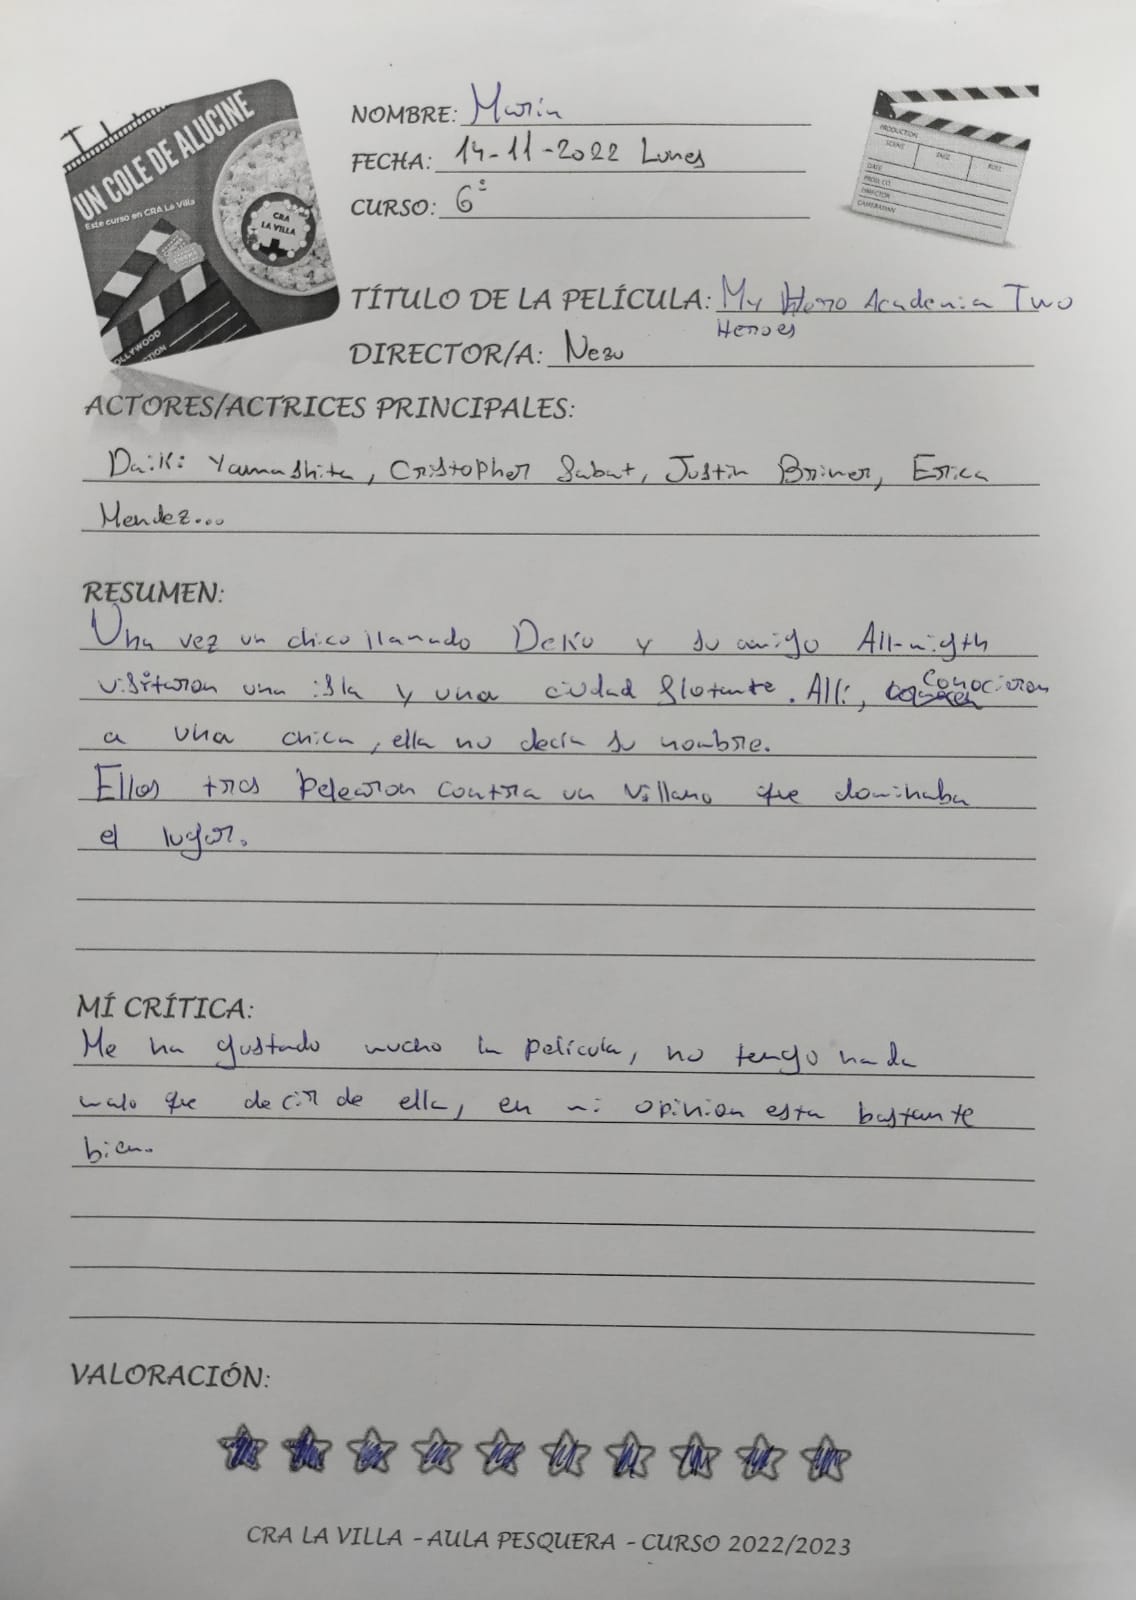 UN COLE DE ALUCINE
Este curso en CRA La Villa
CRA
LA VILLA
OLLYWOOD
CTION
PRODUCTION
SCENE TAKE ROLL
DATE
PROD. CO.
DIRECTOR
CAMERAMAN
NOMBRE: María
FECHA: 14-11-2022 Lunes
CURSO: 6º
TÍTULO DE LA PELÍCULA: My Hero Academia Two
Heroes
DIRECTOR/A: Nezu
ACTORES/ACTRICES PRINCIPALES:
Daiki Yamashita, Cristopher Sabat, Justin Briner, Erica
Mendez...
RESUMEN:
Una vez un chico llamado Deku y su amigo All-migth
visitaron una isla y una ciudad flotante. Allí, conocieron
a una chica, ella no decía su nombre.
Ellos tres pelearon contra un villano que dominaba
el lugar.
MÍ CRÍTICA:
Me ha gustado mucho la película, no tengo nada
malo que decir de ella, en mi opinion esta bastante
bien.
VALORACIÓN:
CRA LA VILLA - AULA PESQUERA - CURSO 2022/2023